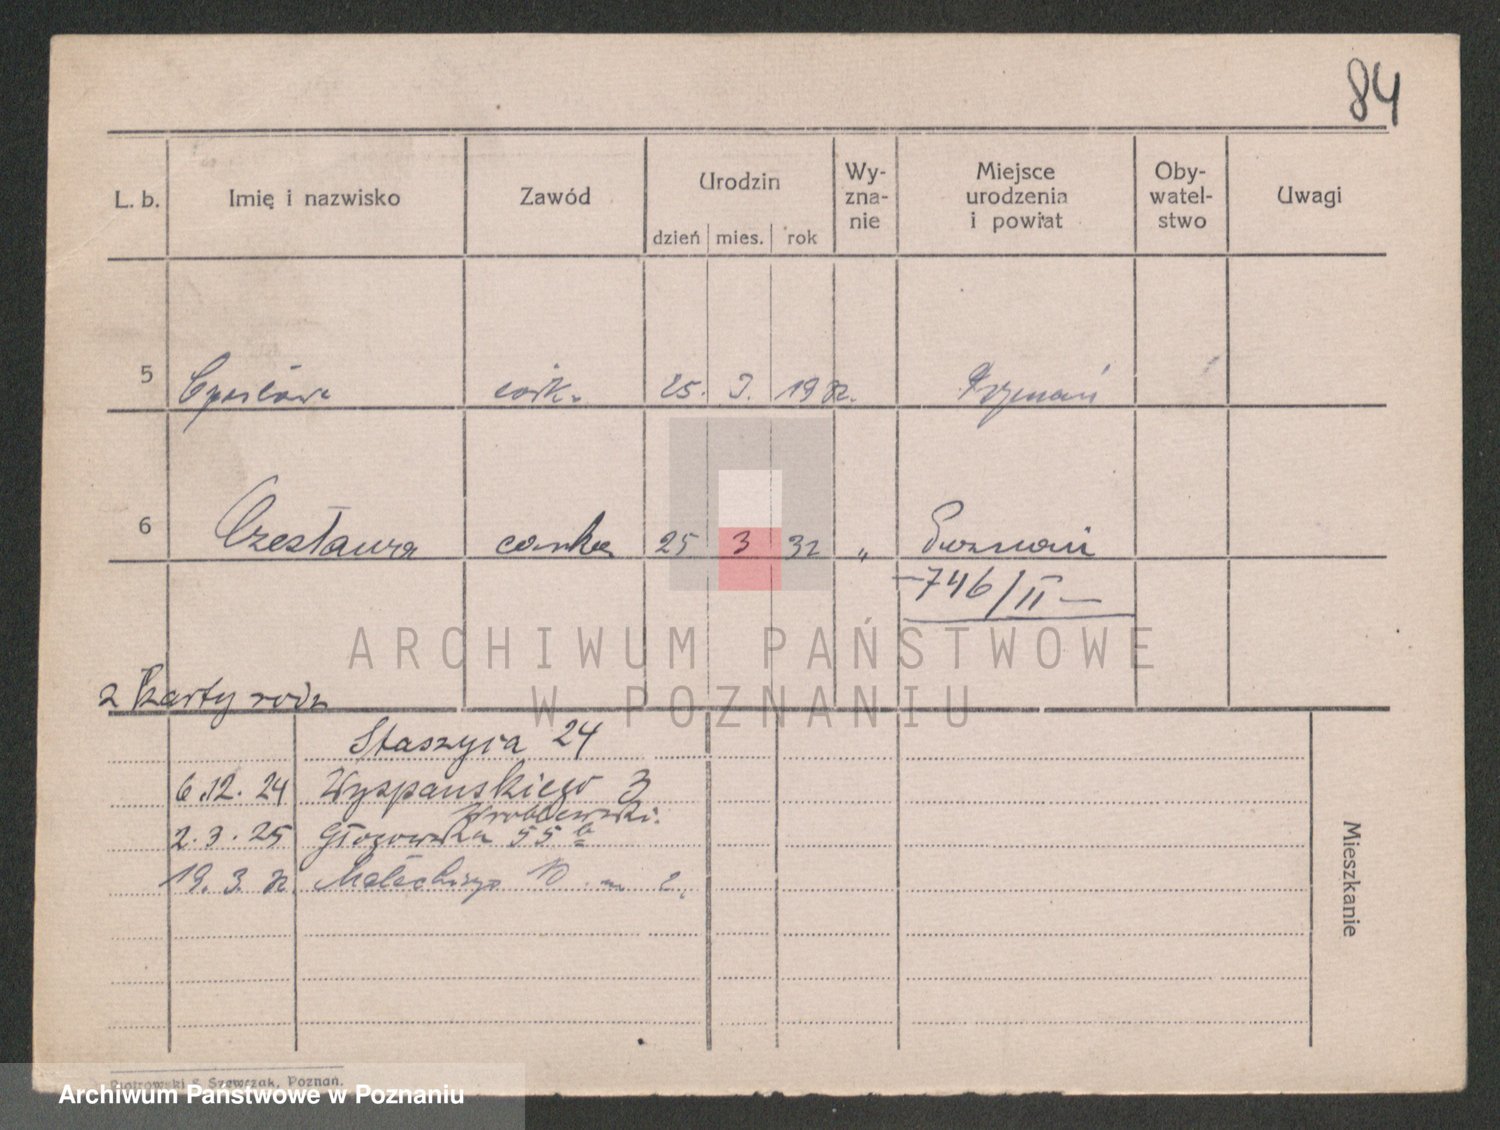 84
L. b. Imię i nazwisko Zawód Urodzin Wy- zna- nie Miejsce urodzenia i powiat Oby- watel- stwo Uwagi
dzień mies. rok
5 córk. 25. 3. 1932. Poznań
6 Czesława córka 25 3 32 „ Poznań
—746/II—
ARCHIWUM PAŃSTWOWE
W POZNANIU
z Karty rodz
Staszyca 24
6.12.24 Wyspiańskiego 3
Wróblewski.
2.3.25 Głogowska 55 b
19.3.32 Małeckiego 10 m 2,
Mieszkanie
Piotrowski & Szewczak, Poznań.
Archiwum Państwowe w Poznaniu